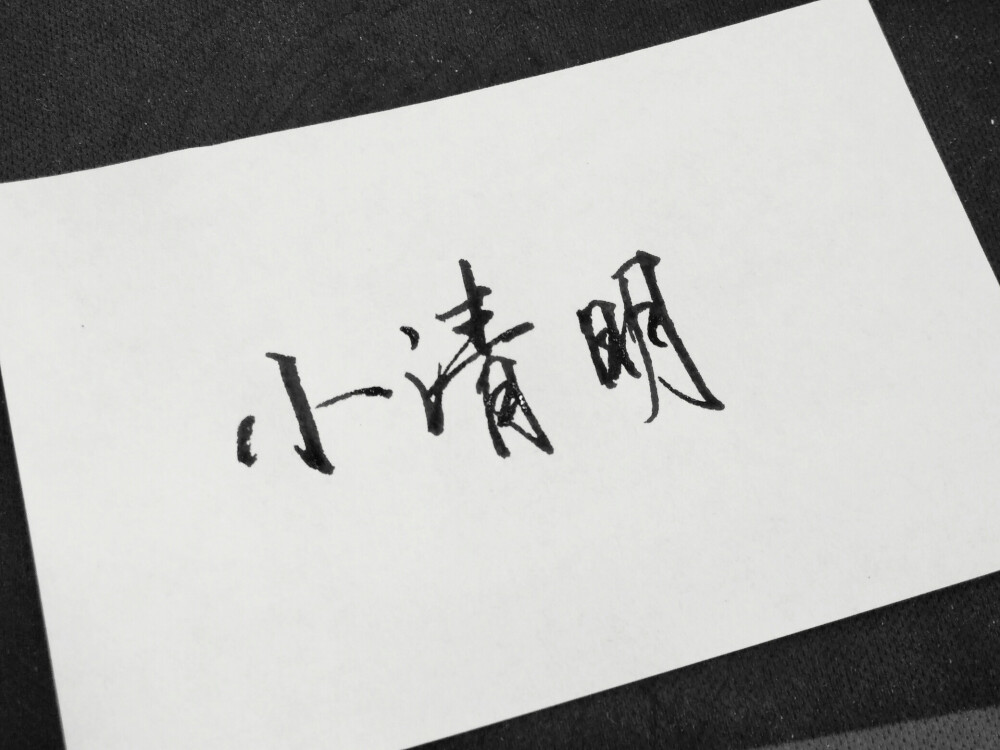 小清明